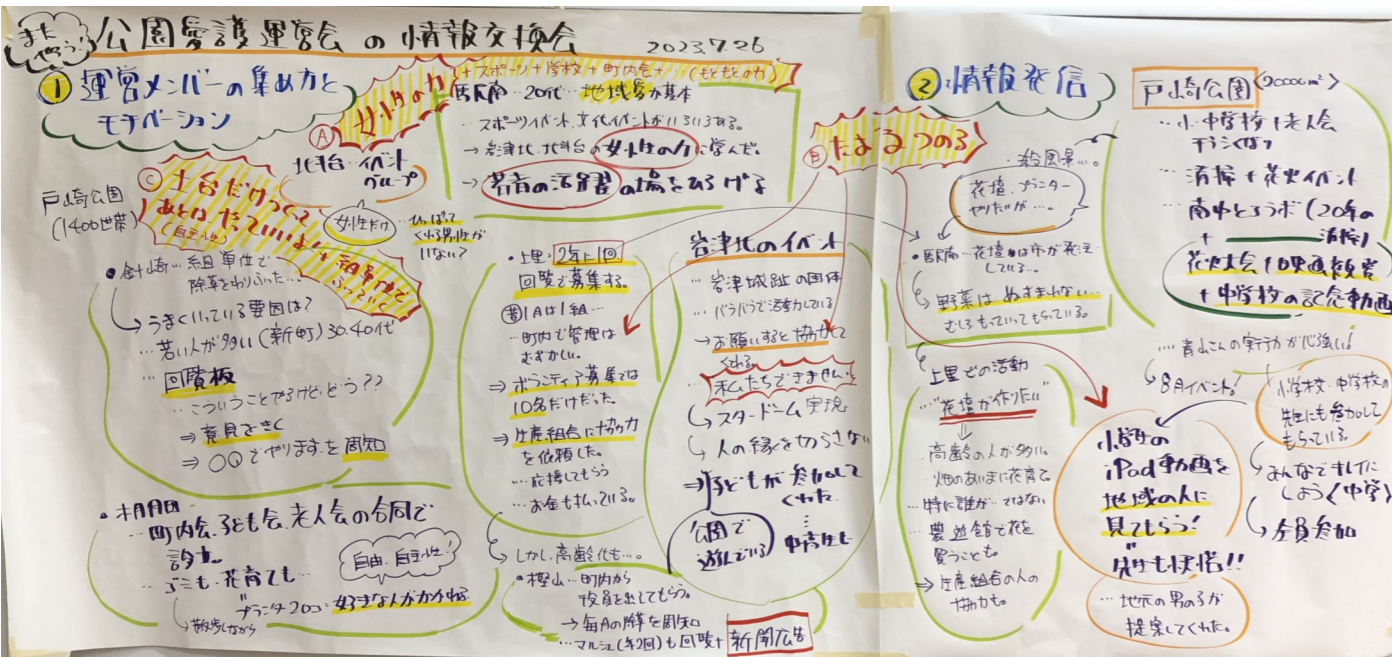 また
やろう!
公園愛護運営会の情報交換会
2023.7.26
① 運営メンバーの集め方と
モチベーション
Ⓐ 女性の力
北斗台・イベント
グループ
女性だけ
…ひっぱって
くれる男性が
いない?
(+スポーツ+学校+町内会+…(もともとの力)
駅南…20代…地域愛が基本
…スポーツイベント、文化イベントがいろいろある。
→岩津北、北斗台の女性の力に学んだ。
→若者の活躍の場をひろげる
Ⓒ 土台だけつくって
あとはやっていいよ!
(自主性)
+組単位で
戸崎公園
(1400世帯)
●針崎…組単位で
除草をわりふった…
うまくいっている要因は?
…若い人が多い(新町)30.40代
…回覧板
…こういうことやるけど、どう??
⇒意見をきく
⇒〇〇でやります。を周知
…町内会、子ども会、老人会の合同で
設立。
自由、自主性!
プランタ200…好きな人がかかわる
→散歩しながら
・上里…2年に1回
回覧で募集する。
昔1Aは1組…
…町内で管理は
むずかしい。
⇒ボランティア募集では
10名だけだった。
⇒生産組合に協力
を依頼した。
…応援してもらう
お金も払っている。
しかし、高齢化も…。
・樫山…町内から
役員を出してもらう。
→毎月の除草を周知
…マルシェ(年2回)も回覧+新聞広告
岩津北のイベント
…岩津城趾の団体
バラバラで活動している
→お願いすると協力して
くれる。
…私たちできません…
→スタードーム実現
→人の縁を切らさない
⇒子どもが参加して
くれた
…中高生も
公園で
遊んでいる
Ⓑ たよるつのる
② 情報発信
・殺風景…。
花壇、プランター
やりたいが…。
・駅南…花壇は市が発注
している…。
→野菜はぬすまれない…
むしろもっていってもらっている。
上里での活動
…"花壇が作りたい"
高齢の人が多い。
…畑のあいまに花育て。
…特に誰が…ではない
…農遊館で花を
買うことも。
⇒生産組合の人の
協力も。
戸崎公園〈2000㎡〉
…小・中学校+老人会
チラシくばり
…清掃+花火イベント
…南中とコラボ(20年の
清掃)
+
花火大会+映画観賞
+中学校の記念動画
…青山さんの実行力が心強い!
→8月イベント!
小学校、中学校の
先生にも参加して
もらっている。
→みんなでキレイに
しよう(中学)
→全員参加
小学生の
iPad動画を
地域の人に
見てもらう!
…地元の男の子が
提案してくれた。